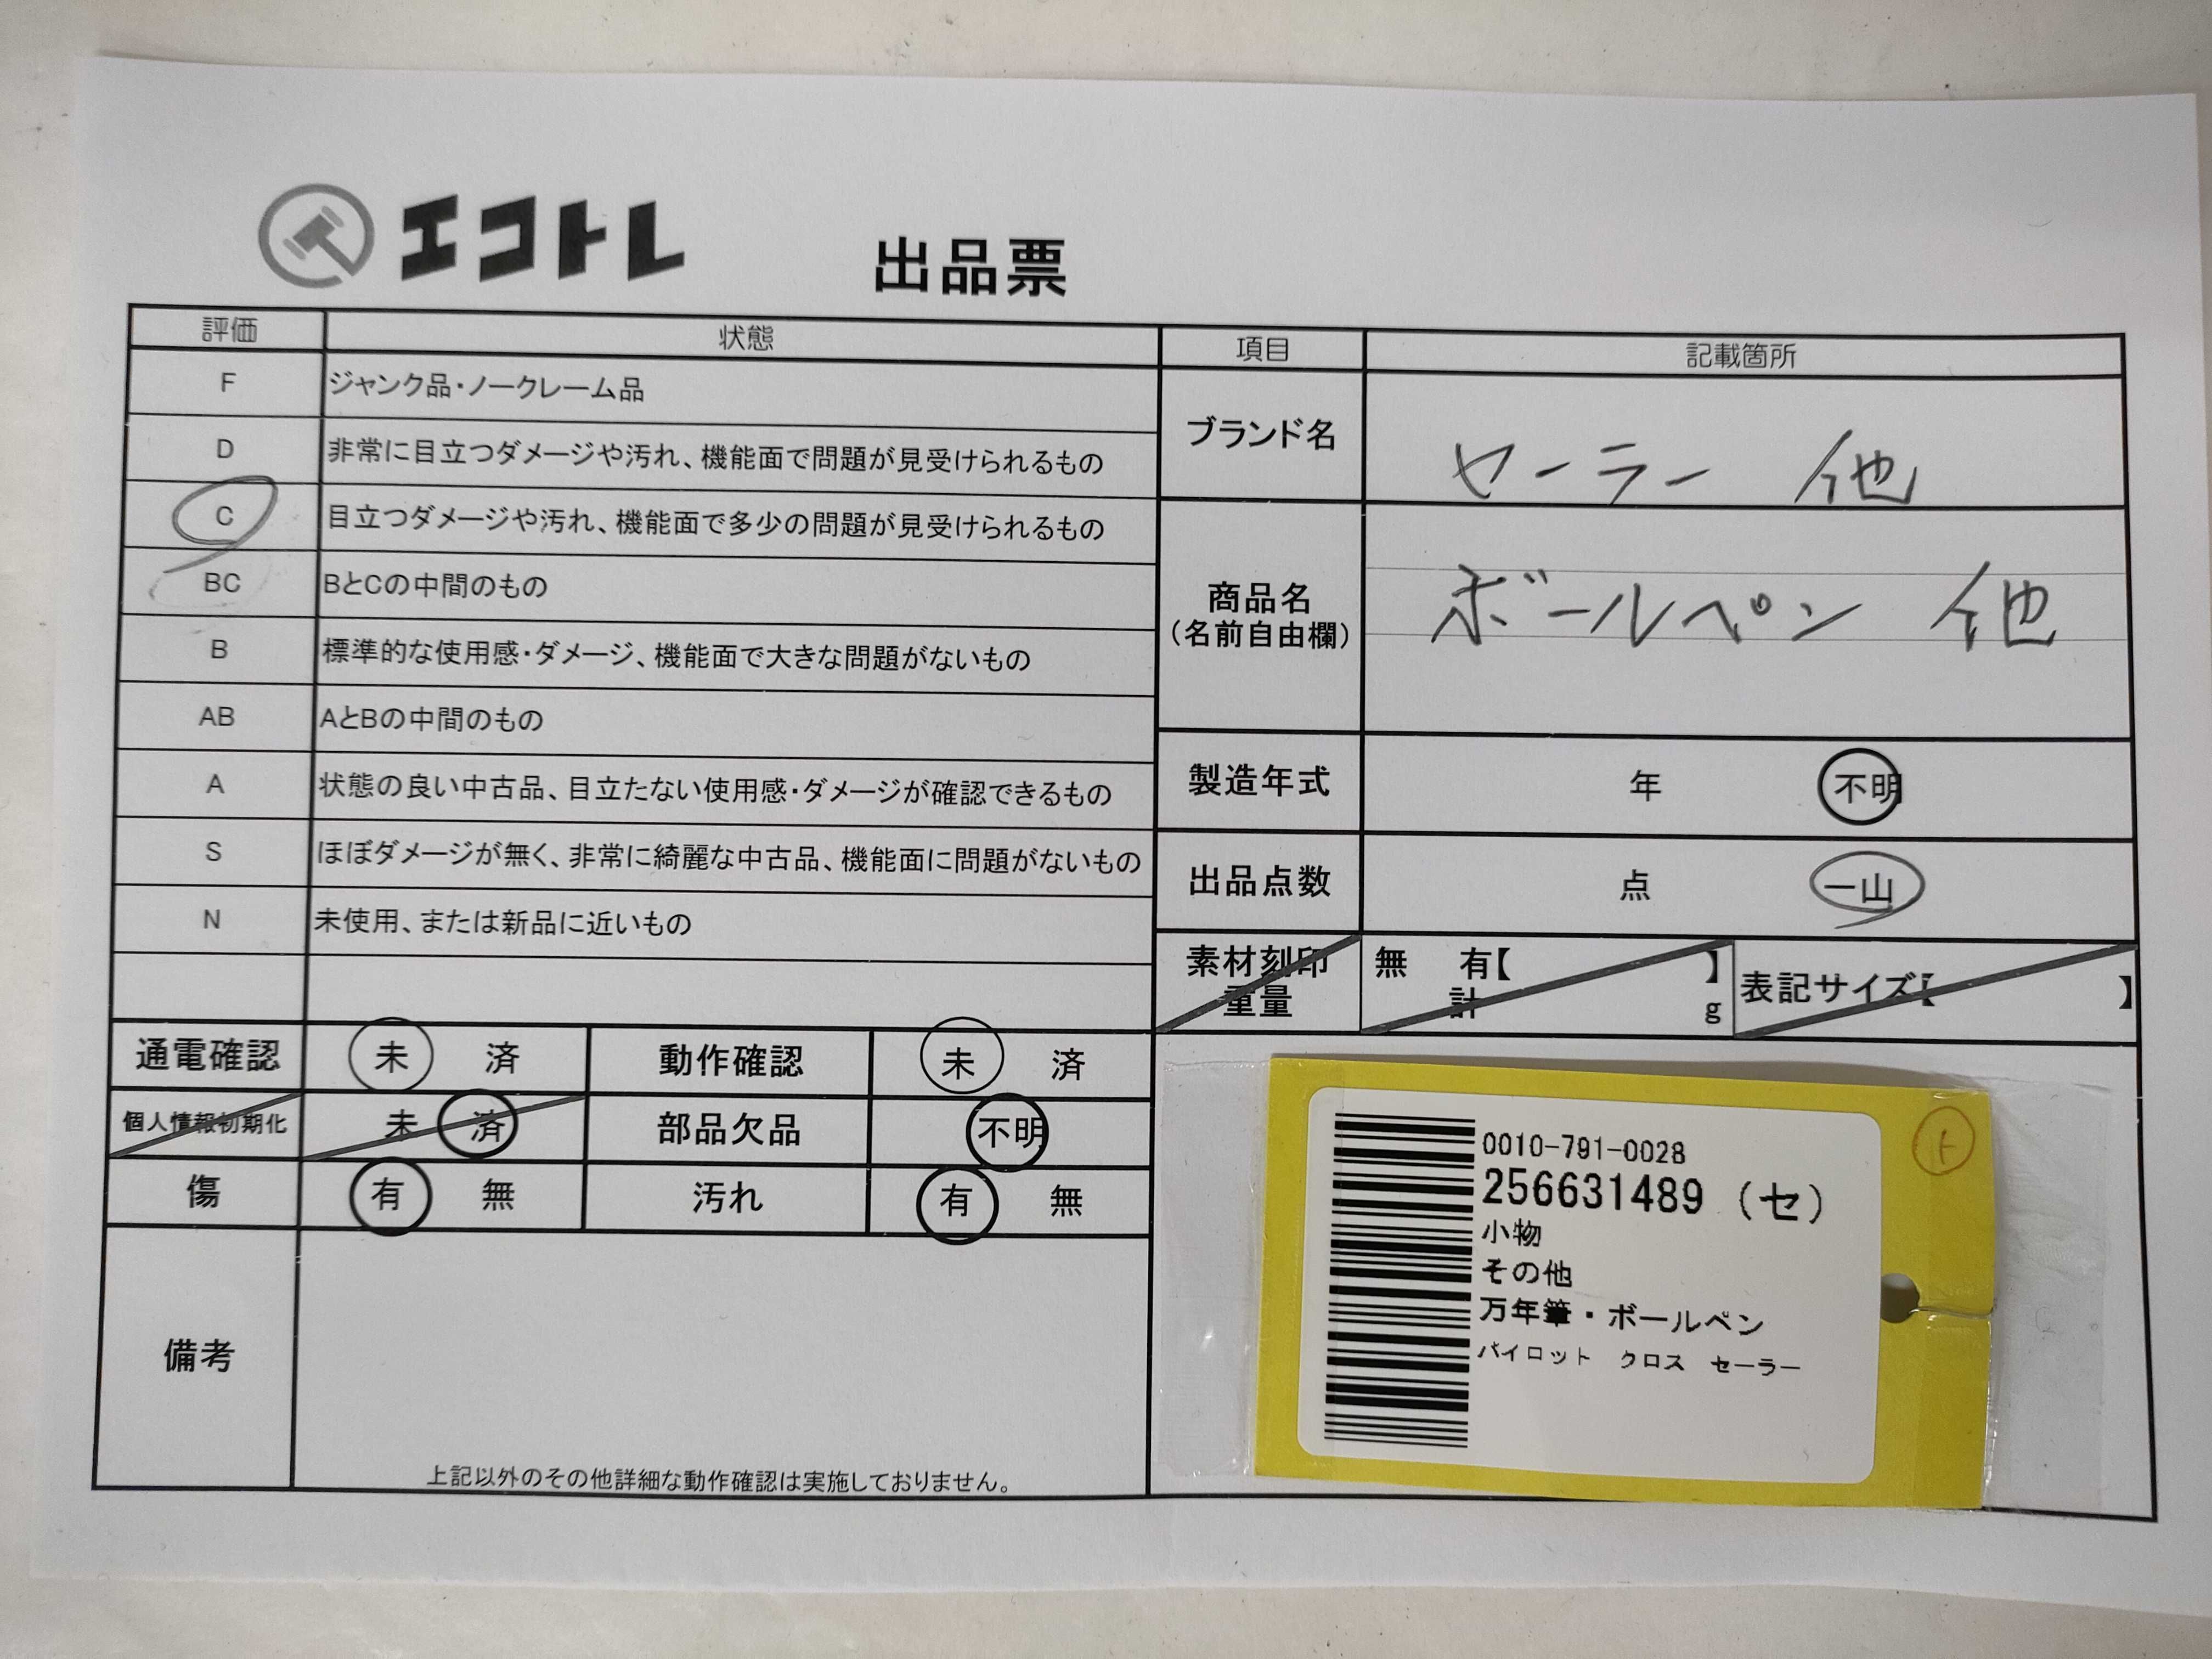 エコトレ
出品票
評価 状態
F ジャンク品・ノークレーム品
D 非常に目立つダメージや汚れ、機能面で問題が見受けられるもの
C 目立つダメージや汚れ、機能面で多少の問題が見受けられるもの
BC BとCの中間のもの
B 標準的な使用感・ダメージ、機能面で大きな問題がないもの
AB AとBの中間のもの
A 状態の良い中古品、目立たない使用感・ダメージが確認できるもの
S ほぼダメージが無く、非常に綺麗な中古品、機能面に問題がないもの
N 未使用、または新品に近いもの
項目 記載箇所
ブランド名 セーラー 他
商品名 ボールペン 他
(名前自由欄)
製造年式 年 不明
出品点数 点 一山
素材刻印 無 有【 】 表記サイズ【 】
重量 計 g
通電確認 未 済 動作確認 未 済
個人情報初期化 未 済 部品欠品 不明
傷 有 無 汚れ 有 無
備考
上記以外のその他詳細な動作確認は実施しておりません。
0010-791-0028
256631489 (セ)
小物
その他
万年筆・ボールペン
パイロット クロス セーラー
ト